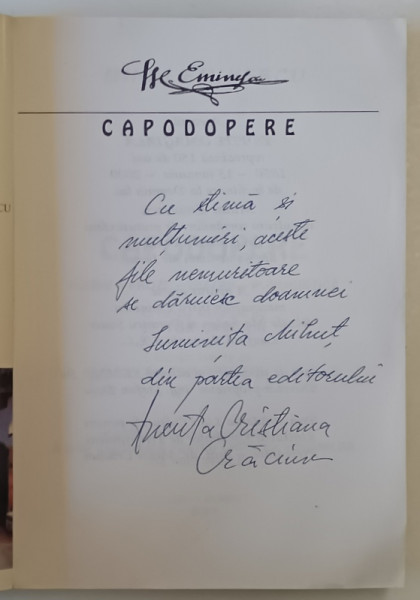 M. Eminescu
CAPODOPERE
Cu stimă și
mulțumiri, aceste
file nemuritoare
se dăruiesc doamnei
Luminița Mihuț
din partea editorului
Ancuța Cristiana
Crăciun
CU